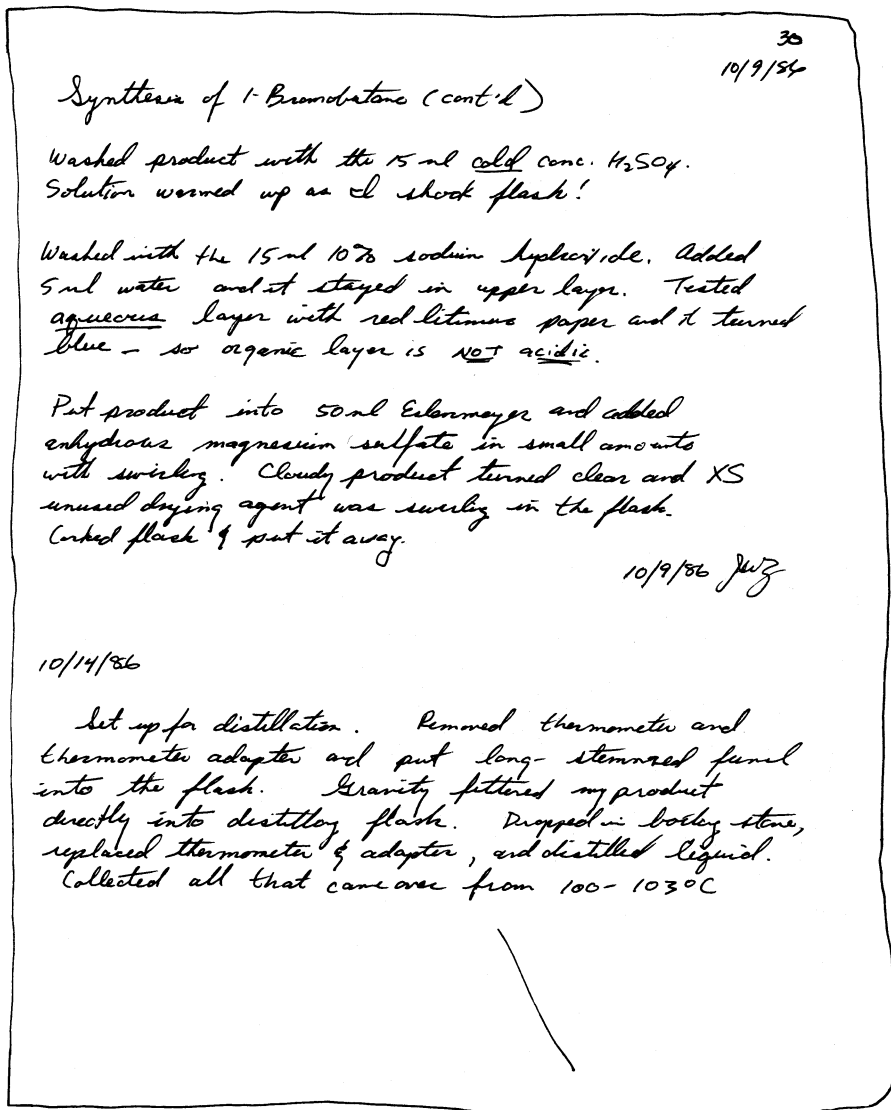 30
10/9/86
Synthesis of 1-Bromobutane (cont'd)
Washed product with the 15 ml cold conc. H₂SO₄.
Solution warmed up as I shook flask!
Washed with the 15 ml 10% sodium hydroxide. Added
5 ml water and it stayed in upper layer. Tested
aqueous layer with red litmus paper and it turned
blue – so organic layer is NOT acidic.
Put product into 50 ml Erlenmeyer and added
anhydrous magnesium sulfate in small amounts
with swirling. Cloudy product turned clear and XS
unused drying agent was swirling in the flask.
Corked flask & put it away.
10/9/86 JWZ
10/14/86
Set up for distillation. Removed thermometer and
thermometer adapter and put long-stemmed funnel
into the flask. Gravity filtered my product
directly into distilling flask. Dropped in boiling stone,
replaced thermometer & adapter, and distilled liquid.
Collected all that came over from 100-103°C